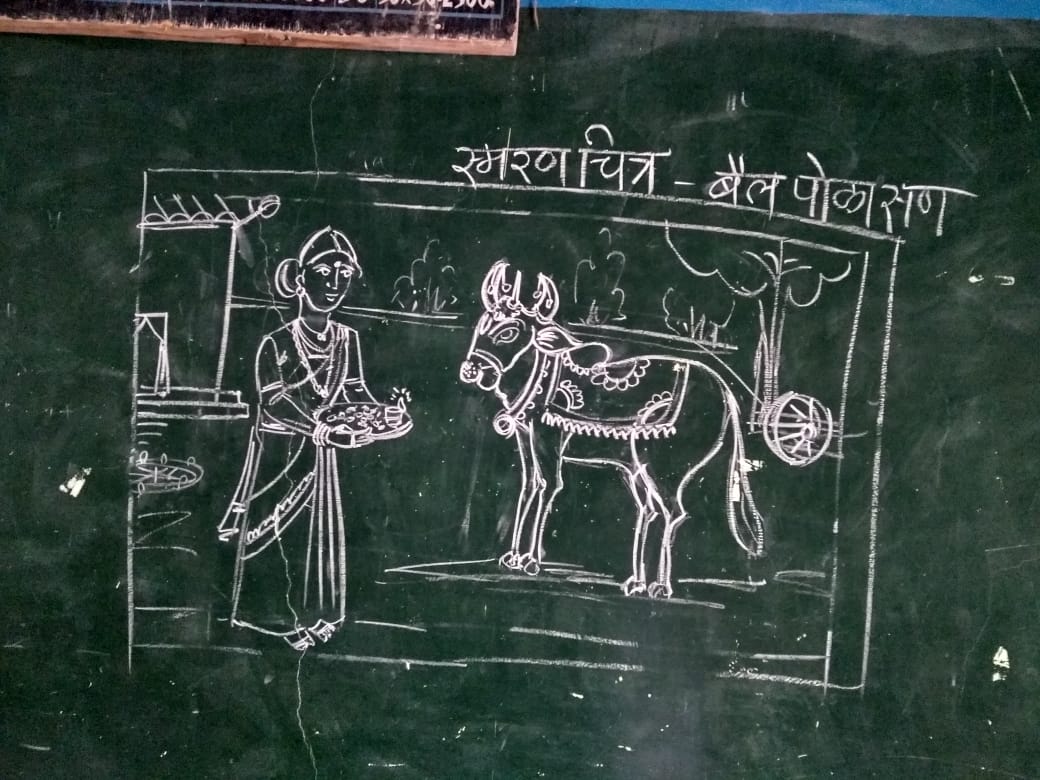 स्मरण चित्र - बैल पोळा सण